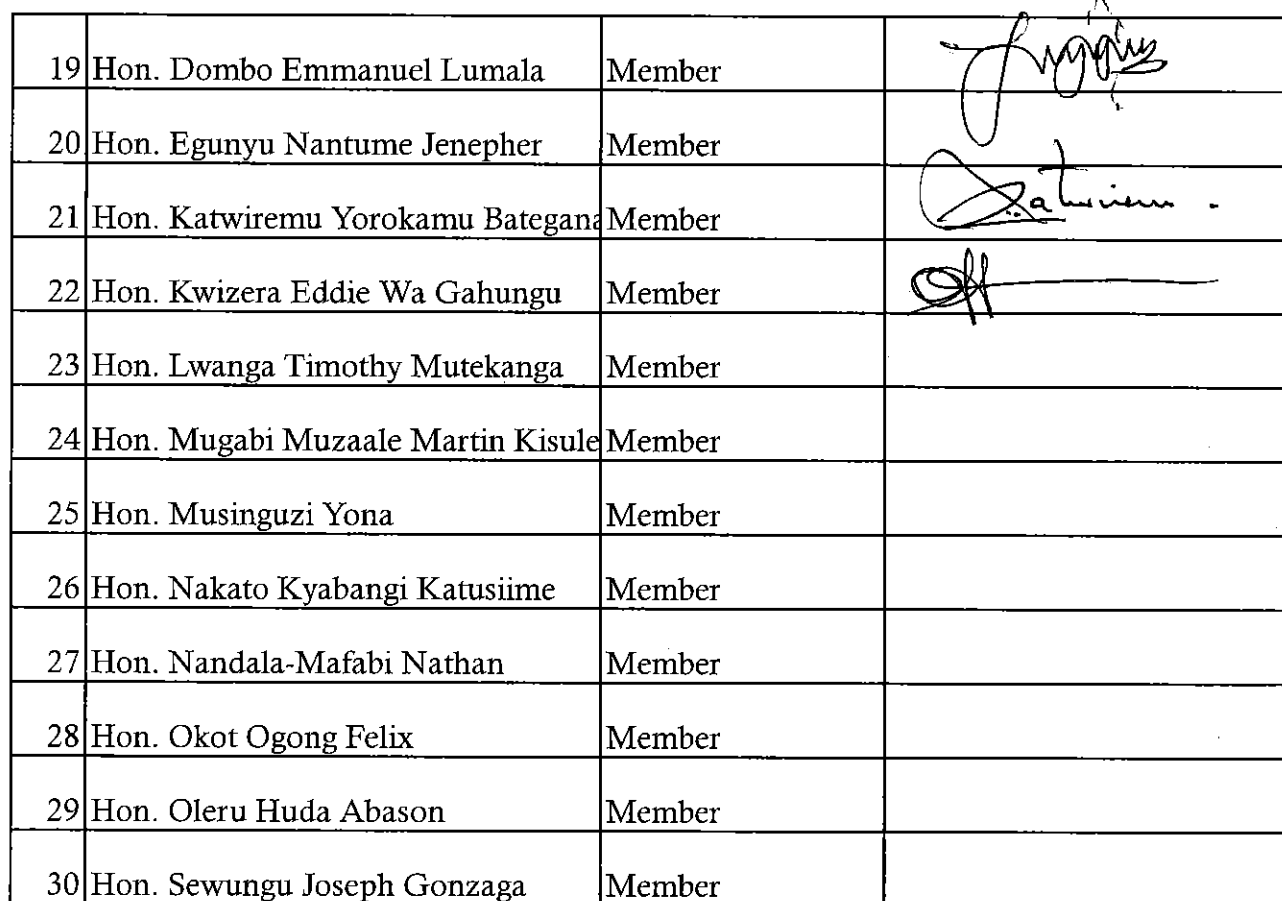 19 Hon. Dombo Emmanuel Lumala Member
20 Hon. Egunyu Nantume Jenepher Member
21 Hon. Katwiremu Yorokamu Bategana Member
22 Hon. Kwizera Eddie Wa Gahungu Member
23 Hon. Lwanga Timothy Mutekanga Member
24 Hon. Mugabi Muzaale Martin Kisule Member
25 Hon. Musinguzi Yona Member
26 Hon. Nakato Kyabangi Katusiime Member
27 Hon. Nandala-Mafabi Nathan Member
28 Hon. Okot Ogong Felix Member
29 Hon. Oleru Huda Abason Member
30 Hon. Sewungu Joseph Gonzaga Member